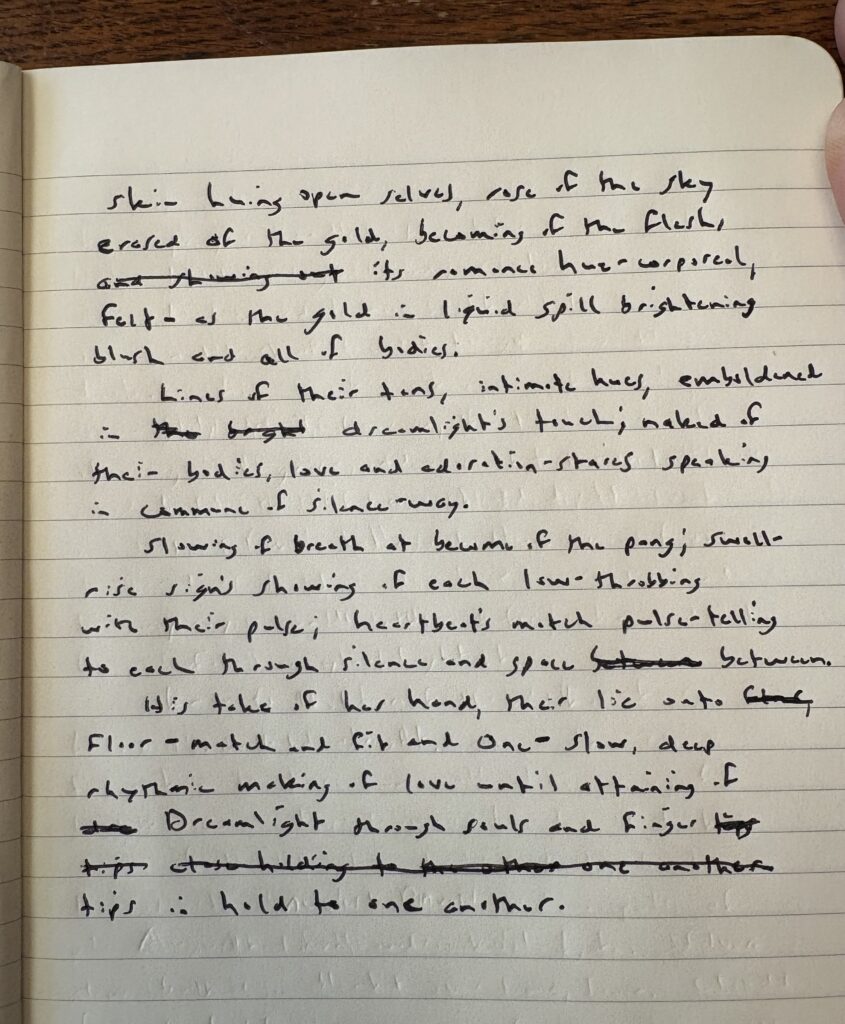 skin huing open selves, rose of the sky
erased of the gold, becoming of the flesh,
and showing out its romance hue-corporeal,
felt - as the gold in liquid spill brightening
blush and all of bodies.
Lines of their tans, intimate hues, emboldened
in the bright dreamlight's touch; naked of
their bodies, love and adoration-stares speaking
in commune of silence-way.
Slowing of breath at become of the pang; swell-
rise signs showing of each low-throbbing
with their pulse; heartbeat's match pulse-telling
to each through silence and space between between.
His take of her hand, their lie onto
floor - match and fit and One - slow, deep
rhythmic making of love until attaining of
Dreamlight through souls and finger tips
tips close holding to the other one another
tips in hold to one another.